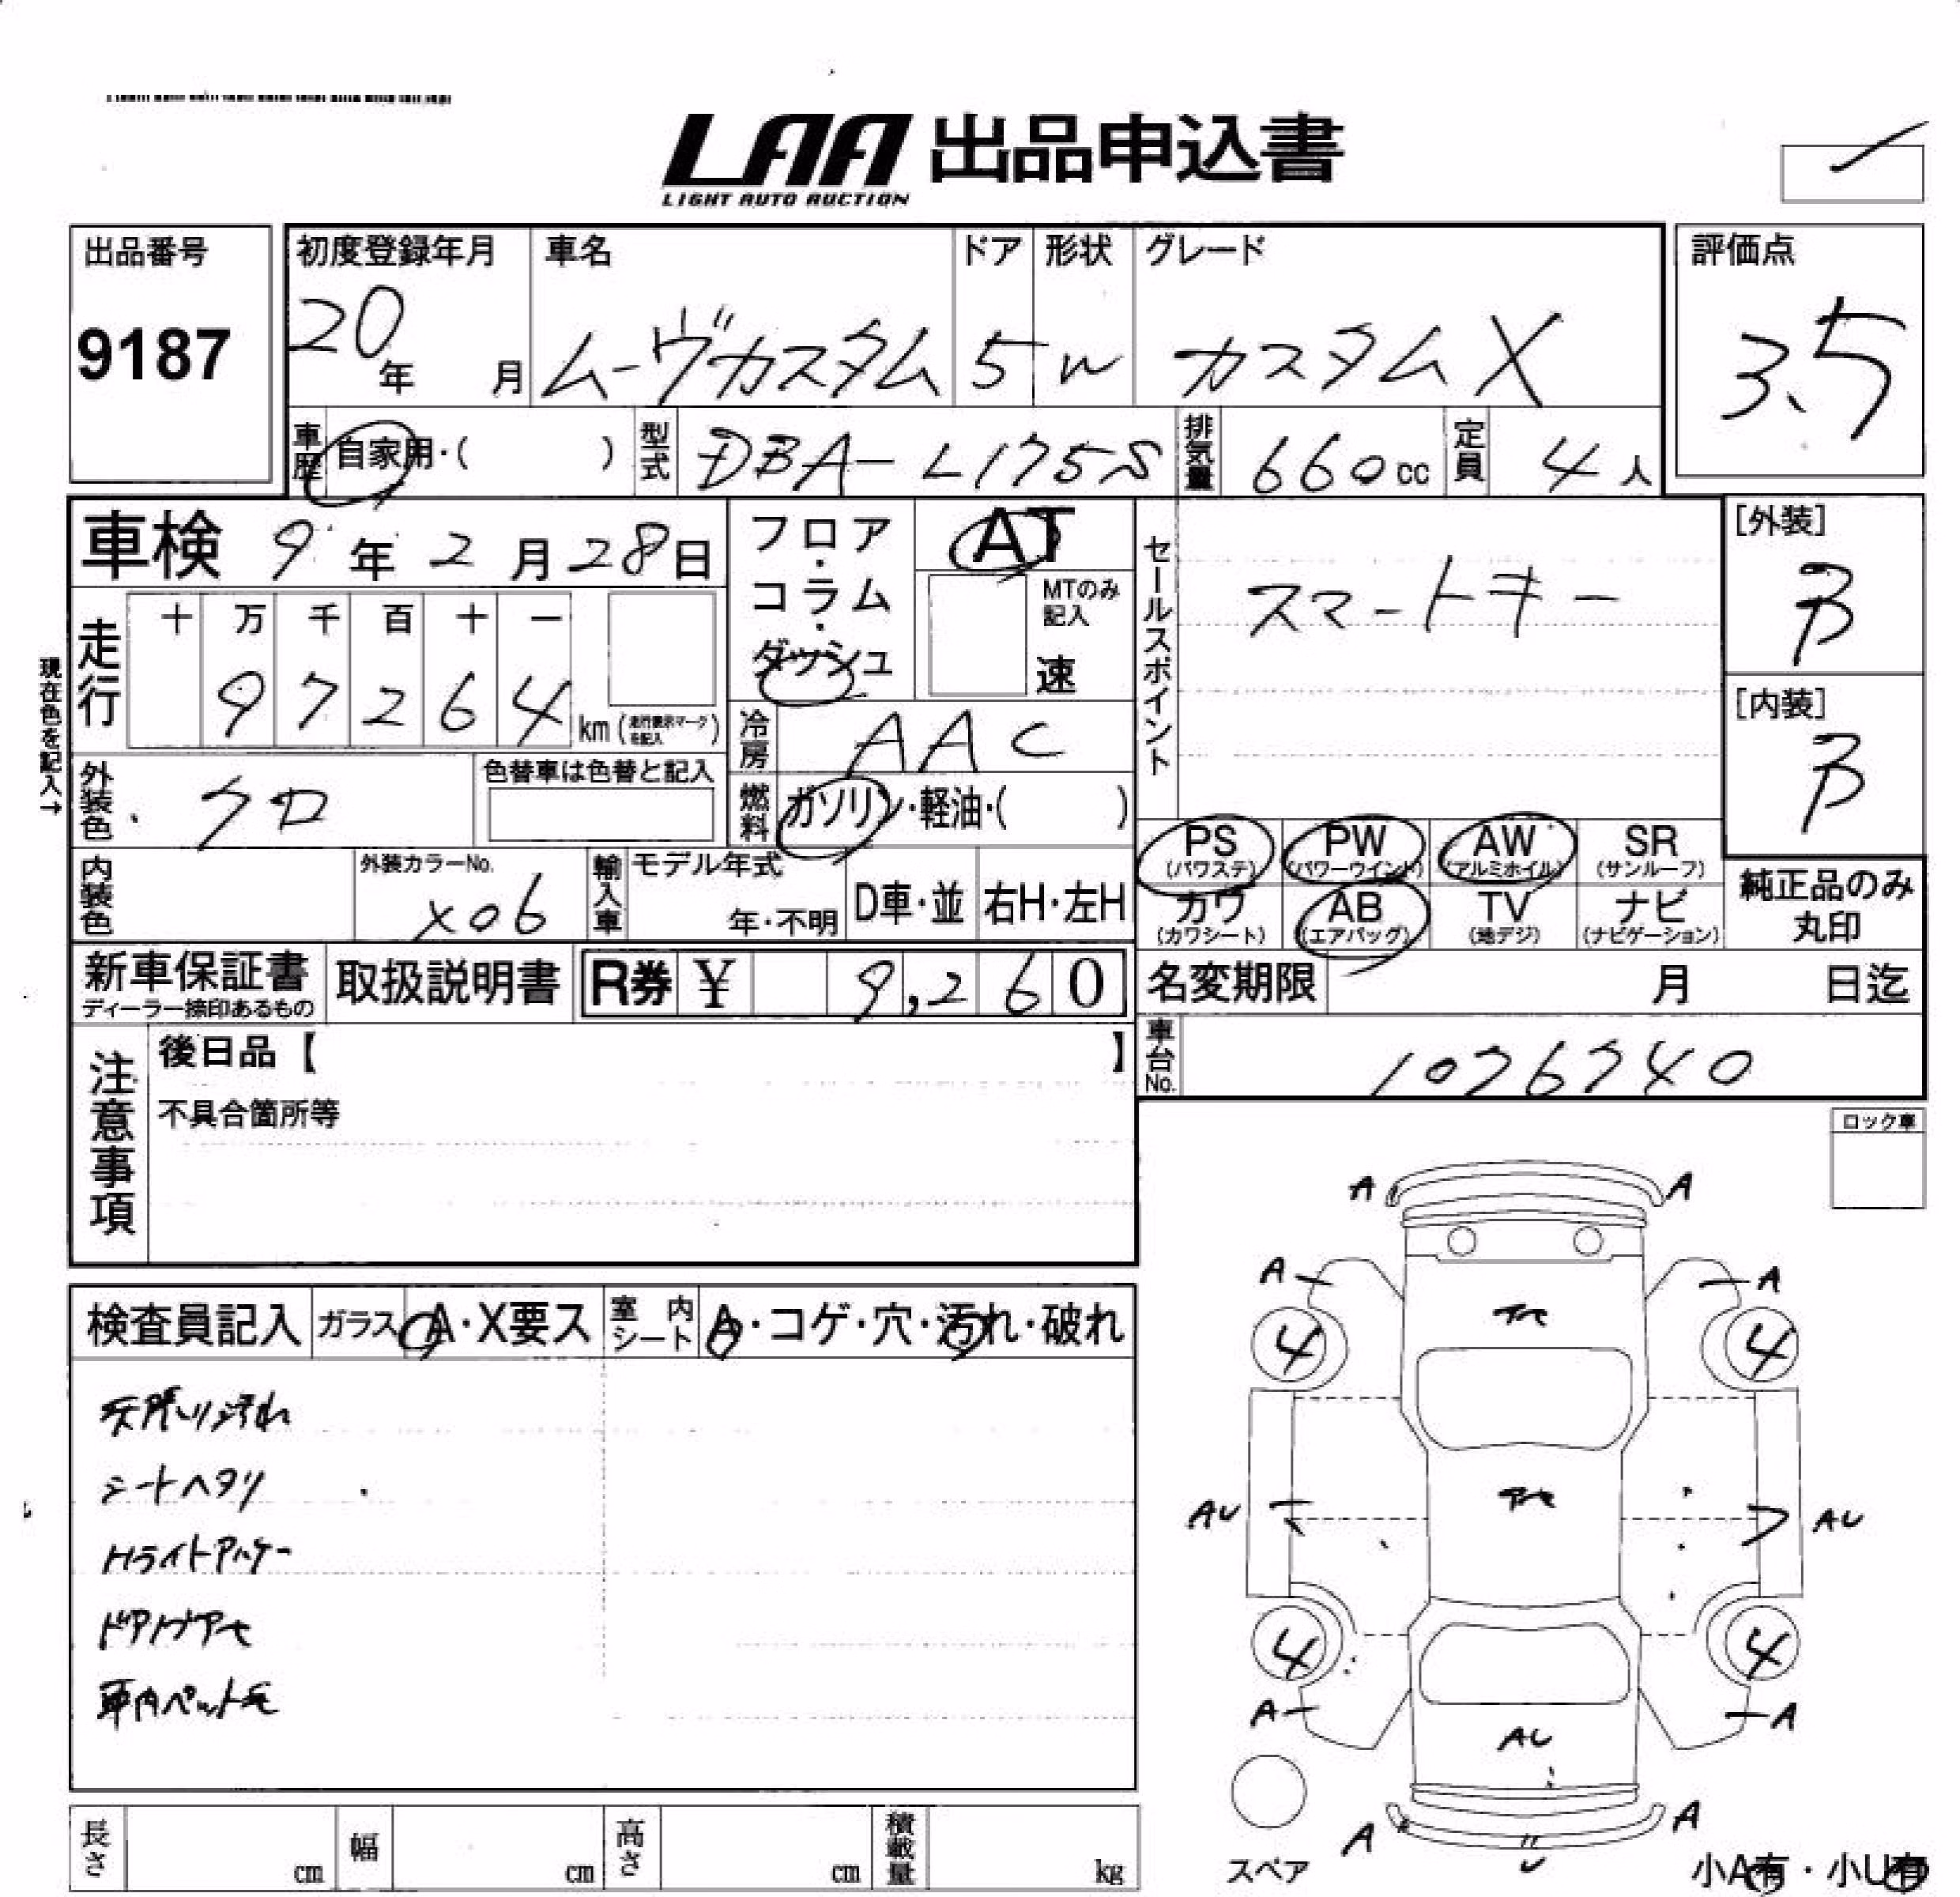 LAA 出品申込書
LIGHT AUTO AUCTION
出品番号
9187
初度登録年月
20年 月
車名
ムーヴカスタム
ドア
5
形状
W
グレード
カスタムX
評価点
3.5
車歴 自家用・( )
型式 DBA-L175S
排気量 660cc
定員 4人
車検 9年2月28日
現在色を記入→
走行 十 万 千 百 十 一
97264 km (走行表示マークを記入)
フロア・コラム・ダッシュ
AT
MTのみ記入
速
冷房 AAC
燃料 ガソリン・軽油・( )
外装色 クロ
色替車は色替と記入
内装色
外装カラーNo.
X06
輸入車 モデル年式
年・不明
D車・並
右H・左H
セールスポイント
スマートキー
[外装]
B
[内装]
B
PS (パワステ)
PW (パワーウインド)
AW (アルミホイル)
SR (サンルーフ)
カワ (カワシート)
AB (エアバッグ)
TV (地デジ)
ナビ (ナビゲーション)
純正品のみ丸印
新車保証書
ディーラー捺印あるもの
取扱説明書
R券 ¥ 9,260
名変期限 月 日迄
車台No. 1076740
注意事項
後日品【 】
不具合箇所等
ロック車
検査員記入
ガラス A・X要ス
室内シート A・コゲ・穴・汚れ・破れ
天張り汚れ
シートヘタリ
Hライトアハケー
ドアノブアセ
車内ペット毛
A A
A A
アセ
4 4
アセ
AU AU
4 4
A A
AU
A A
U
スペア
小A有・小U有
長さ cm
幅 cm
高さ cm
積載量 kg